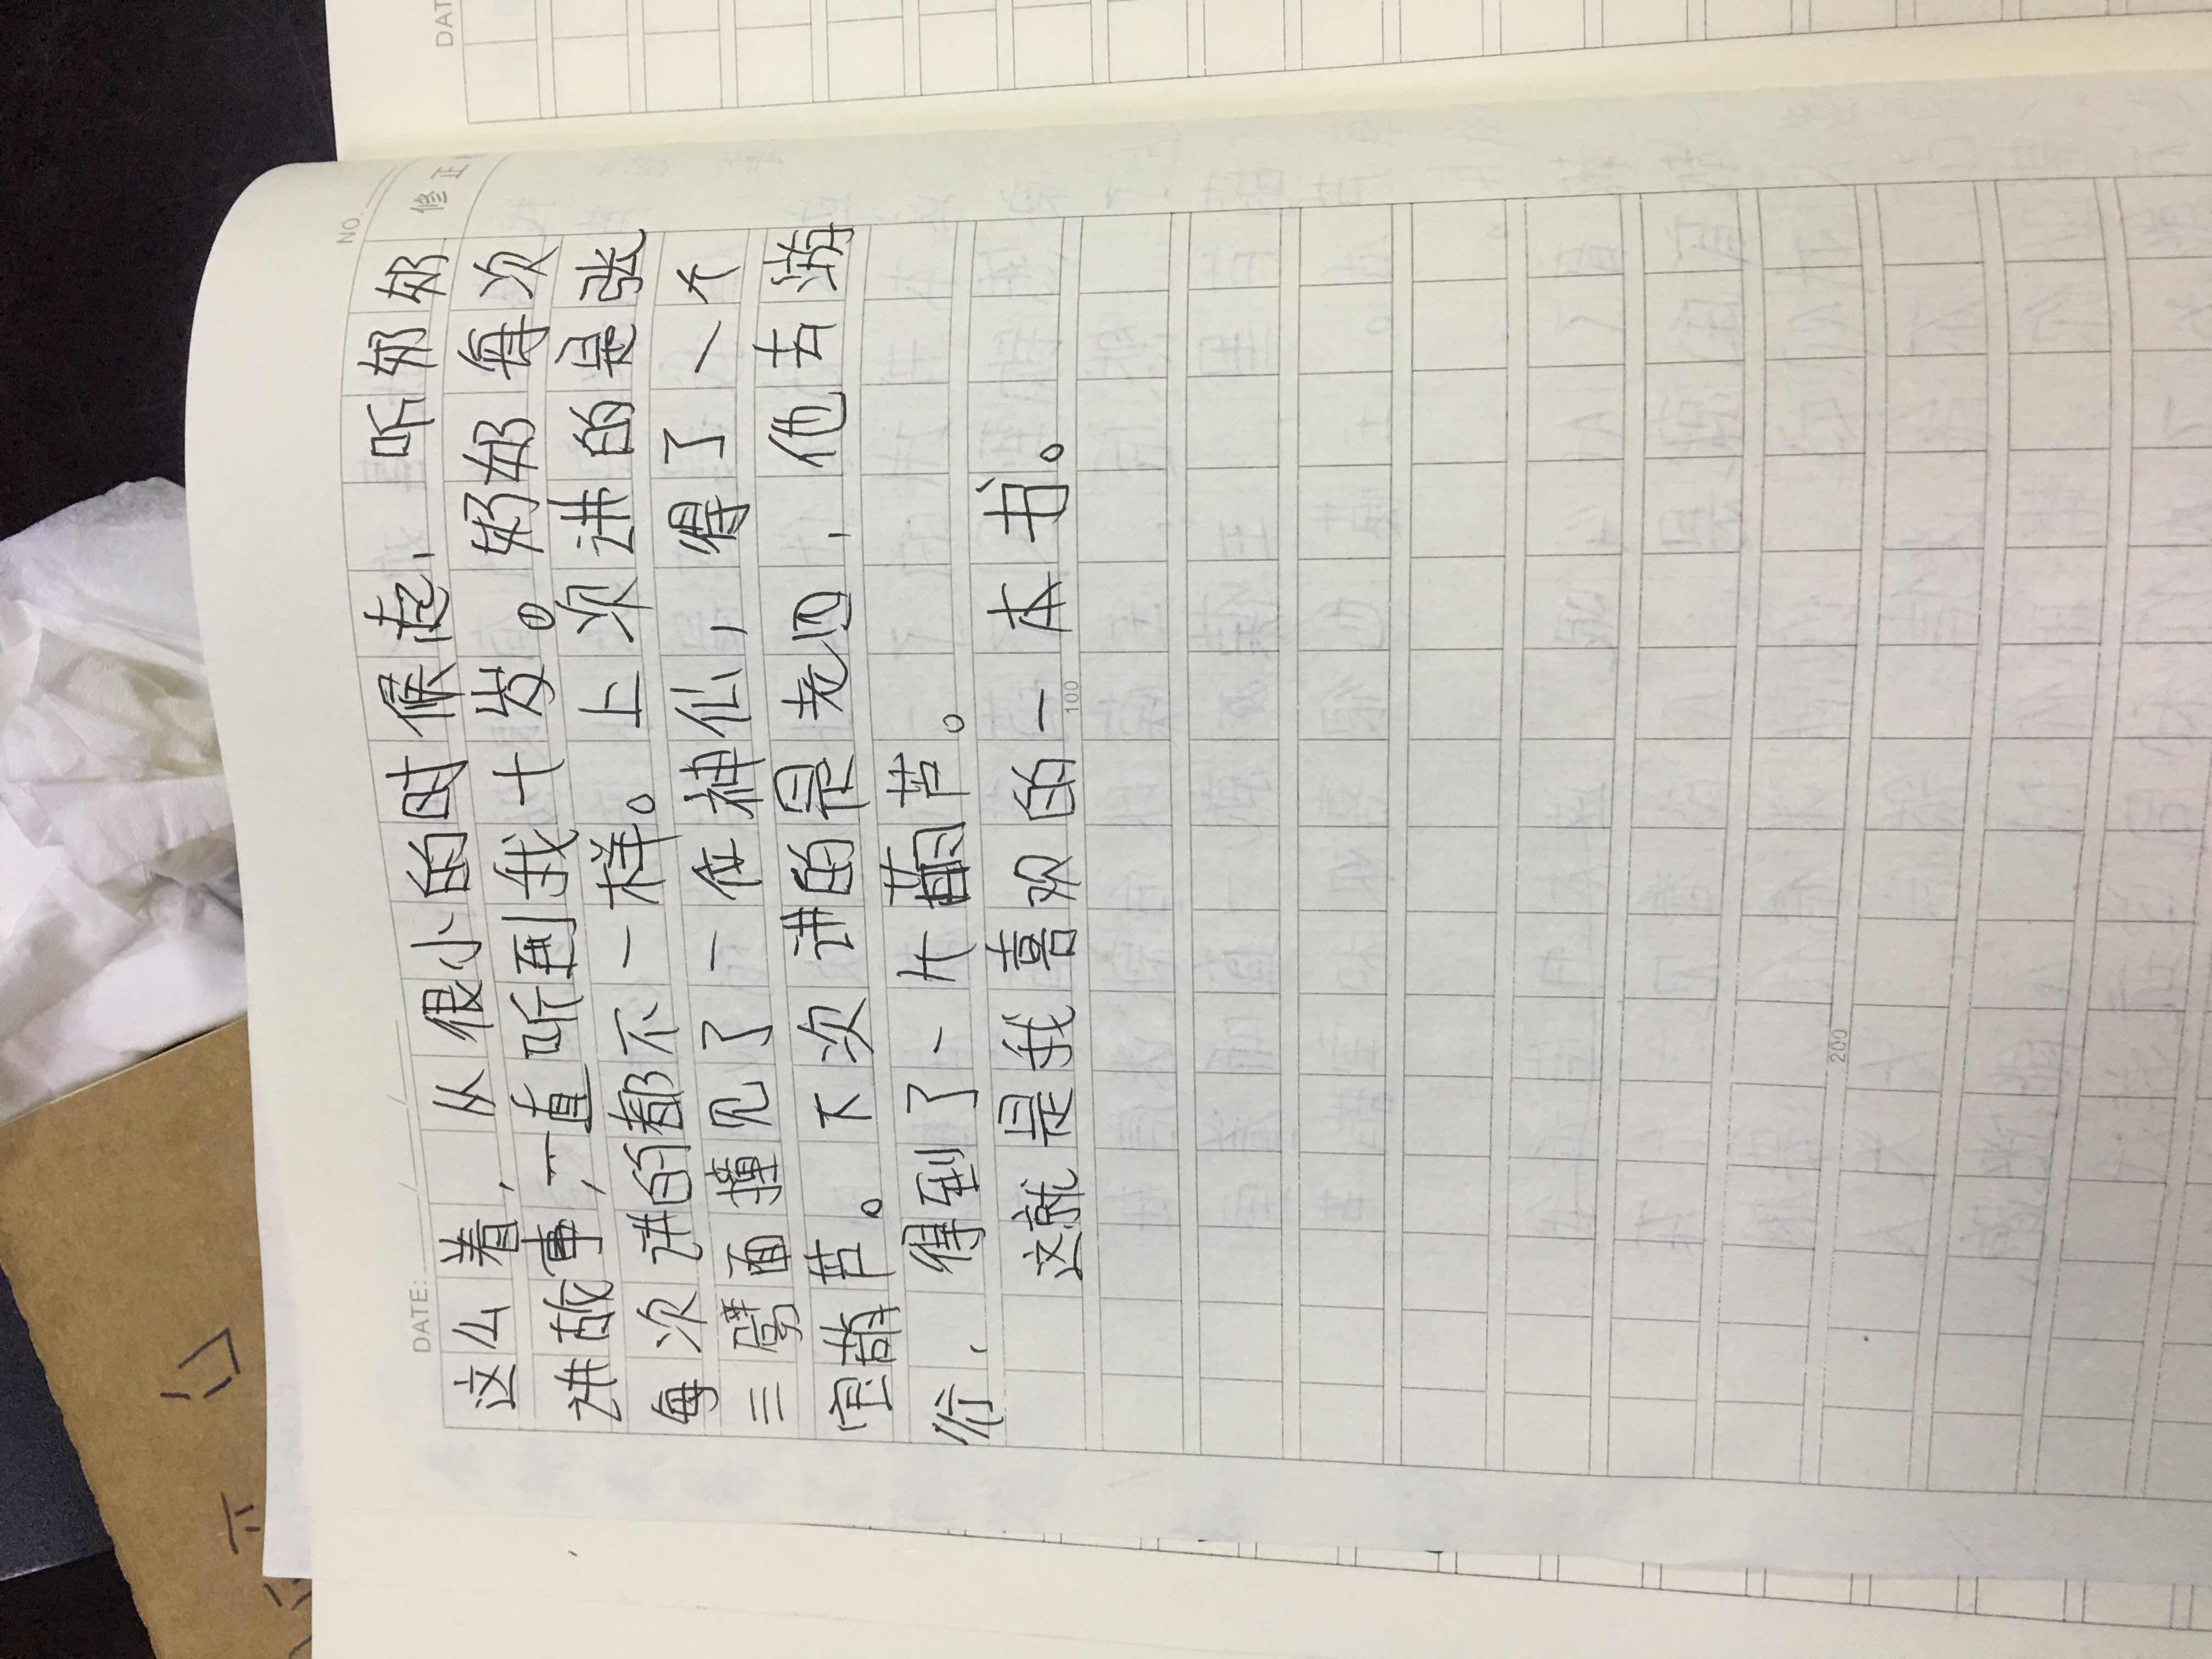 NO.
DATE: / /
修正
这么着,从很小的时候起,听奶奶
讲故事,一直听到我十岁。奶奶每次
每次讲的都不一样。上次讲的是张
三劈面撞见了一位神仙,得了一个
宝葫芦。下次讲的是老四,他去游
行,得到了一个葫芦。
这就是我喜欢的一本书。
100
200
DAT